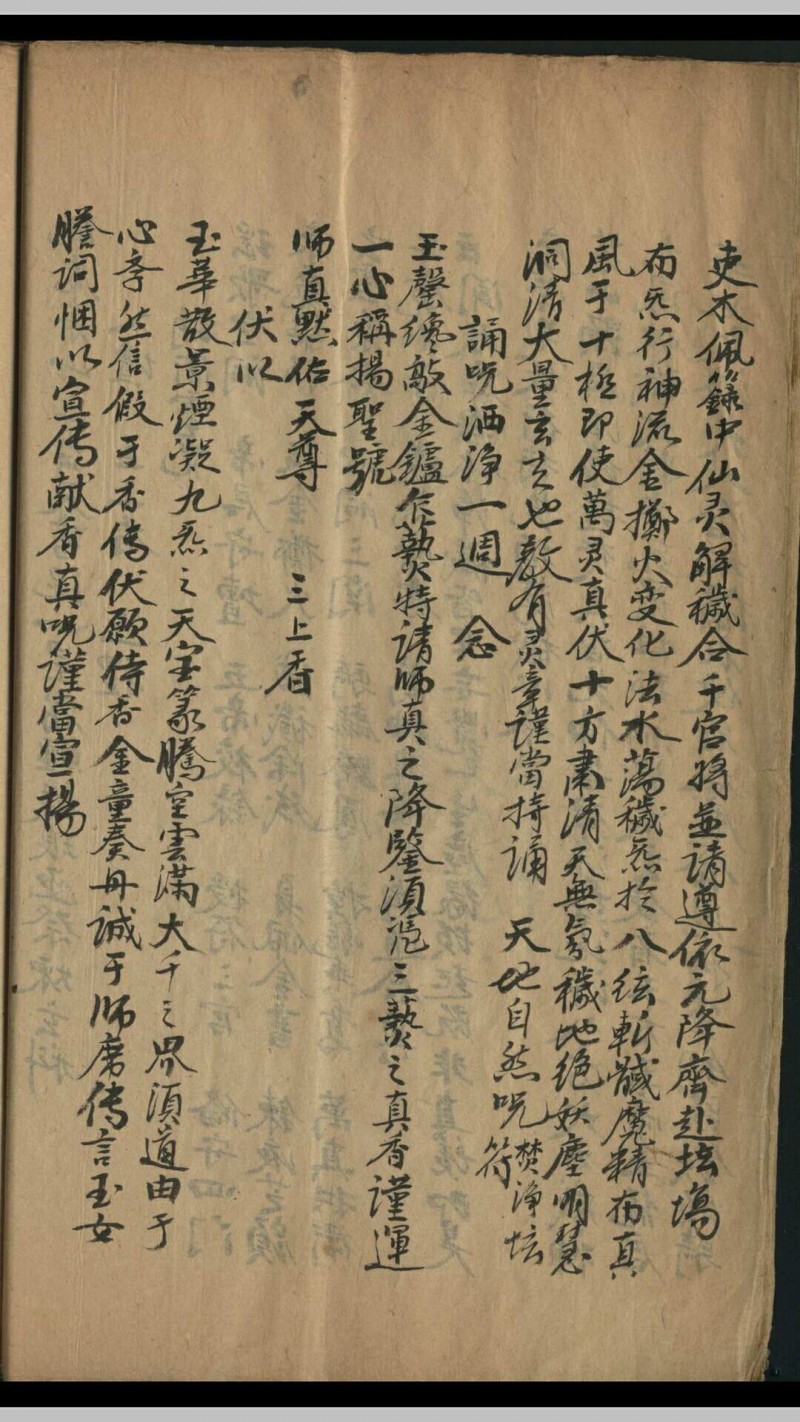 吏本佩籙中仙灵解穢合千官将並請遵依元降齊赴坛塲
布炁行神流金擲火变化法水蕩穢炁於八紘斬馘魔精布真
風于十極即使萬灵真伏十方肅清天無氛穢地绝妖塵明慧
洞清大量玄玄也教有灵章謹當持誦 天地自然呪 焚淨坛符
誦呪洒淨一週 念
玉磬纔敲金鑪乍爇特请师真之降鑒須凴三爇之真香謹運
一心稱揚聖號
师真黙佑天尊 三上香
伏以
玉華散景煙凝九炁之天宝篆騰空雲滿大千之界須道由于
心孝然信假于香傳伏愿侍香金童奏丹誠于师席傳言玉女
謄詞悃以宣傳献香真呪謹當宣揚